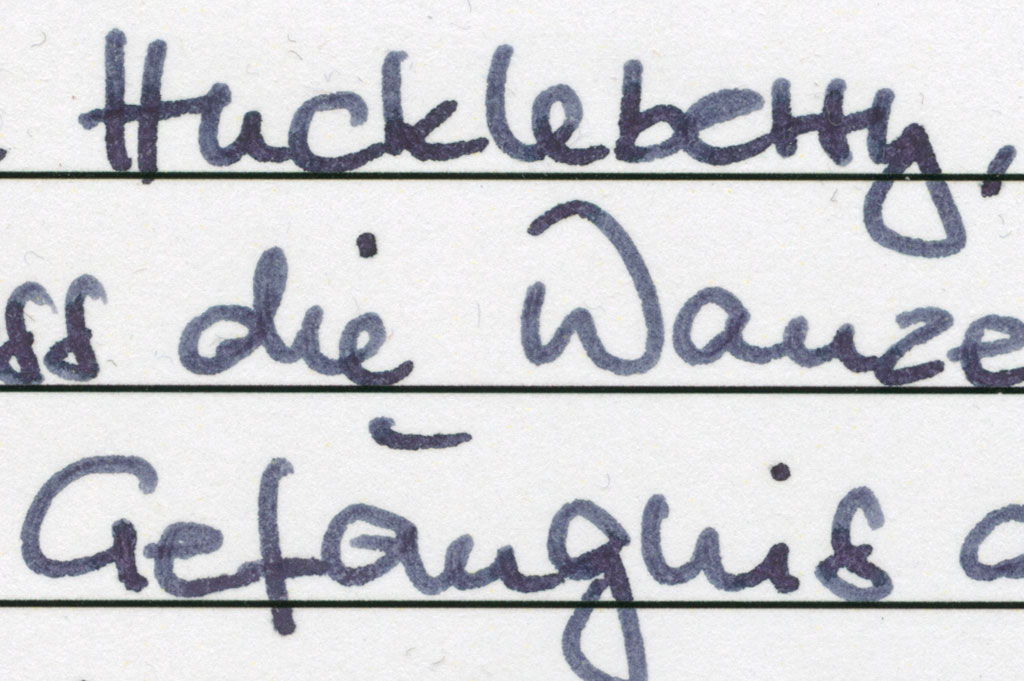 Huckleberry,
ss die Wanze
Gefängnis